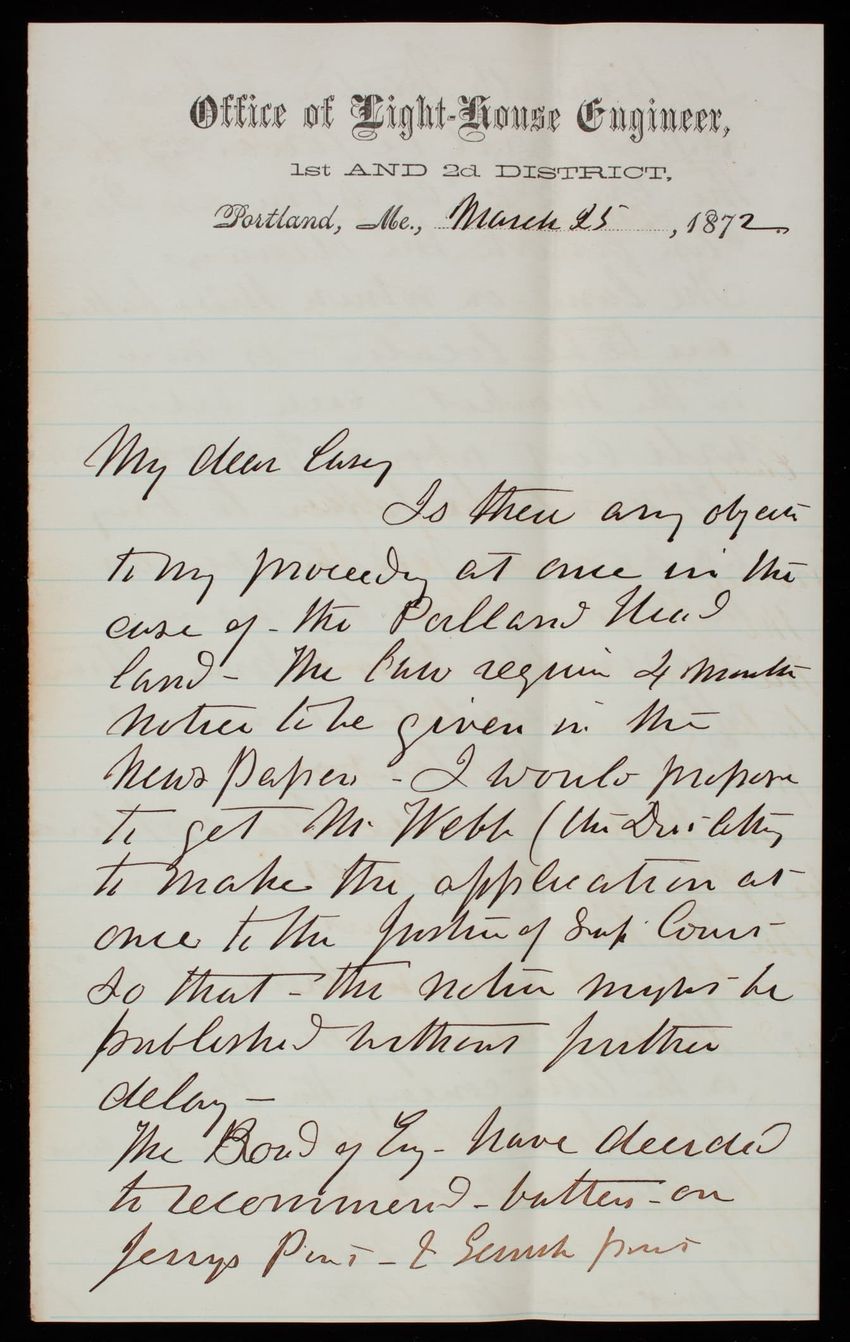 Office of Light-House Engineer,
1st AND 2d DISTRICT,
Portland, Me., March 25, 1872.
My dear Casey
Is there any objecti
to my proceedig at once in the
case of - the Portland Head
land - The law require 4 months
notice to be given in the
News Papers - I would propose
to get Mr Webb (the Dis Atty
to make the application at
once to the Justice of Sup. Court
so that - the notice might be
published without further
delay -
The Board of Eng - have decided
to recommend - battery - on
Jerrys Point - &
point